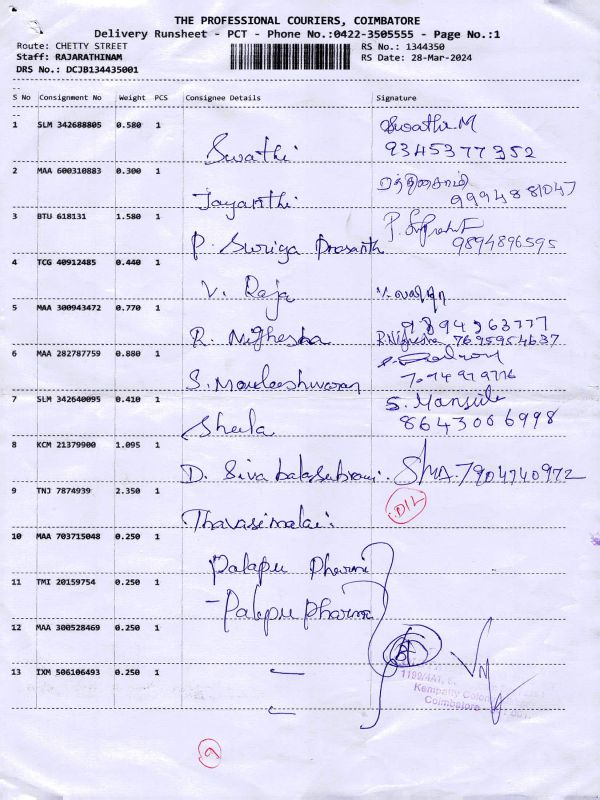 THE PROFESSIONAL COURIERS, COIMBATORE
Delivery Runsheet - PCT - Phone No.:0422-3505555 - Page No.:1
Route: CHETTY STREET RS No.: 1344350
Staff: RAJARATHINAM RS Date: 28-Mar-2024
DRS No.: DCJB134435001
S No Consignment No Weight PCS Consignee Details Signature
1 SLM 342688805 0.580 1 Swathi Swathi.M
9345377352
2 MAA 600310883 0.300 1 Jayanthi
9994881047
3 BTU 618131 1.580 1 P. Suriya Prasanth
9894896595
4 TCG 40912485 0.440 1 V. Raja
9894363777
5 MAA 300943472 0.770 1 R. Nighesha R.Nighesha 7695954637
6 MAA 282787759 0.880 1 S. Mouleeshwaran
7 SLM 342640095 0.410 1 Sheela
8643006998
8 KCM 21379900 1.095 1 D. Siva balasubrami. 7904740972
9 TNJ 7874939 2.350 1 Thavasimalai D/L
10 MAA 703715048 0.250 1 Palapu Pharmi
11 TMI 20159754 0.250 1 Palapu Pharmi
12 MAA 300528469 0.250 1
13 IXM 506106493 0.250 1
1199/4A1,
Kempatty Colony
Coimbatore
9